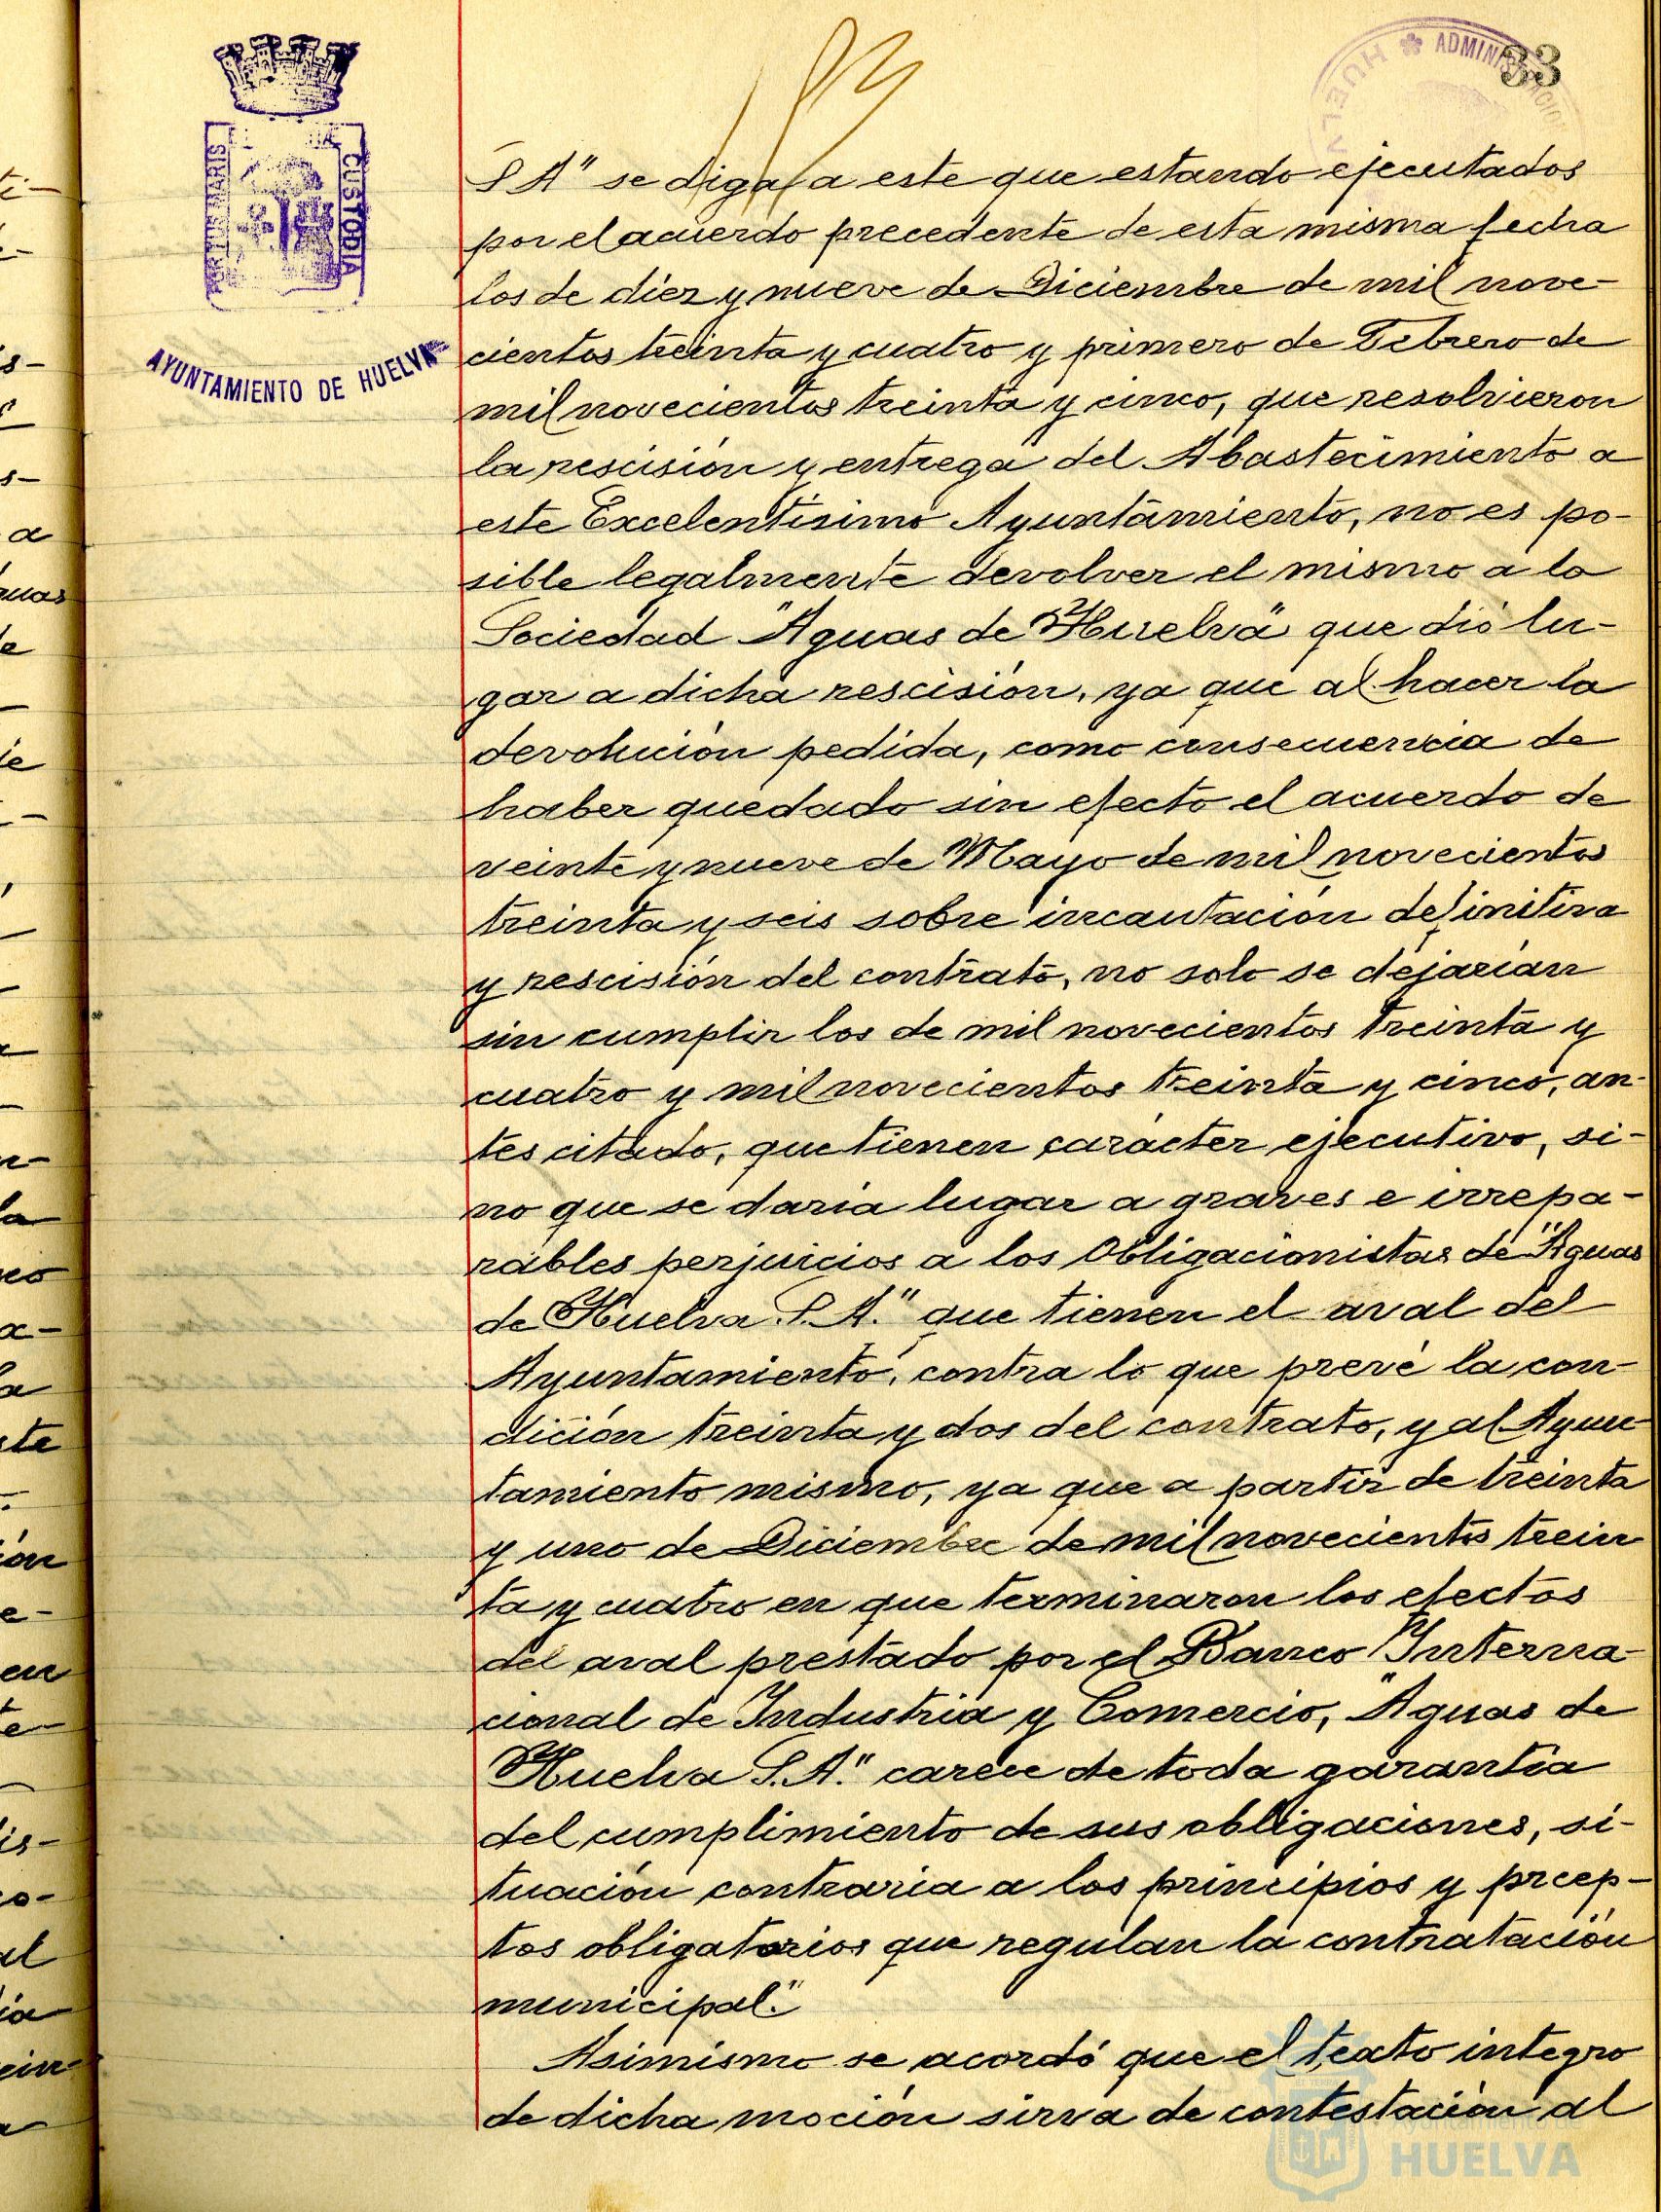 33
ADMINISTRACION
HUELV
PORTUS MARIS
CUSTODIA
AYUNTAMIENTO DE HUELVA
S A" se diga a este que estando ejecutados
por el acuerdo precedente de esta misma fecha
los de diez y nueve de Diciembre de mil nove-
cientos treinta y cuatro y primero de Febrero de
mil novecientos treinta y cinco, que resolvieron
la rescisión y entrega del Abastecimiento a
este Excelentísimo Ayuntamiento, no es po-
sible legalmente devolver el mismo a la
Sociedad "Aguas de Huelva" que dió lu-
gar a dicha rescisión, ya que al hacer la
devolución pedida, como consecuencia de
haber quedado sin efecto el acuerdo de
veinte y nueve de Mayo de mil novecientos
treinta y seis sobre incautación definitiva
y rescisión del contrato, no solo se dejarían
sin cumplir los de mil novecientos treinta y
cuatro y mil novecientos treinta y cinco, an-
tes citado, que tienen carácter ejecutivo, si-
no que se daría lugar a graves e irrepa-
rables perjuicios a los Obligacionistas de "Aguas
de Huelva S.A." que tienen el aval del
Ayuntamiento, contra lo que prevé la con-
dición treinta y dos del contrato, y al Ayun
tamiento mismo, ya que a partir de treinta
y uno de Diciembre de mil novecientos trein
ta y cuatro en que terminaron los efectos
del aval prestado por el Banco Interna-
cional de Industria y Comercio, "Aguas de
Huelva S.A." carece de toda garantía
del cumplimiento de sus obligaciones, si-
tuación contraria a los principios y prcep-
tos obligatorios que regulan la contratación
municipal."
Asimismo se acordó que el texto integro
de dicha moción sirva de contestación al
Ayuntamiento de
HUELVA